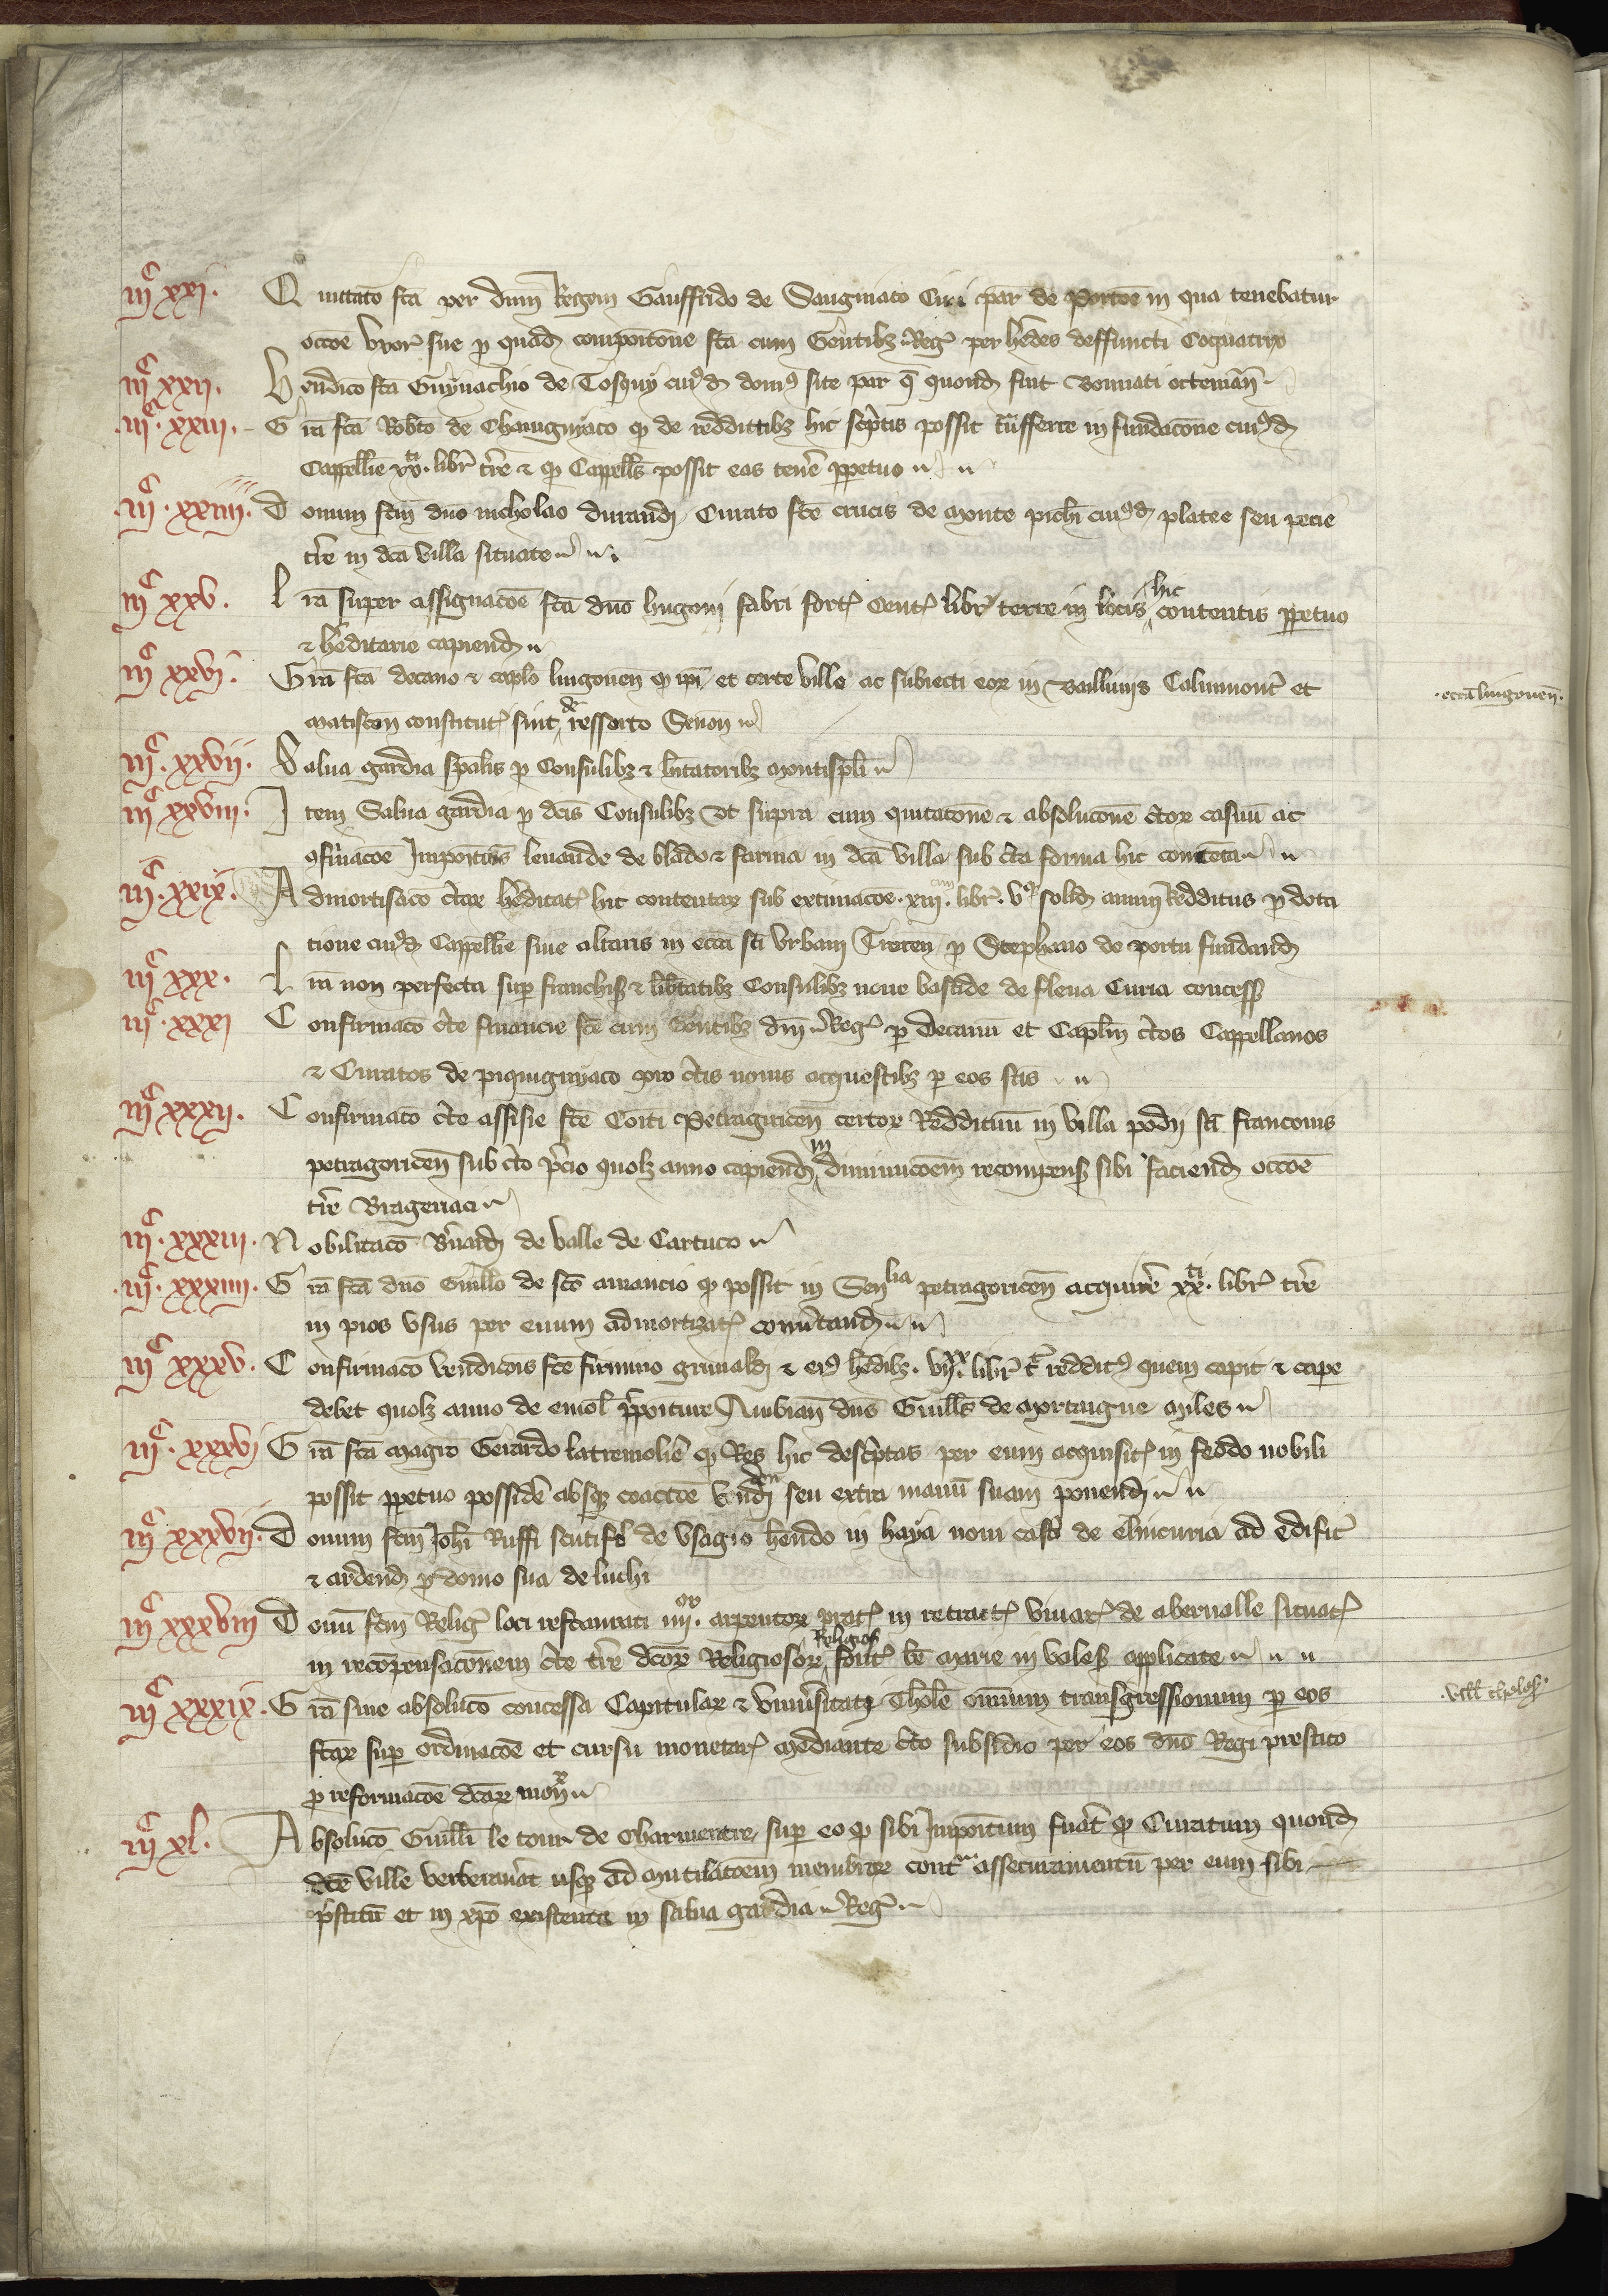 iij.c xxj. Quittatio fca per dnm Regem Gauffrido de Sauguiaco Civi par de porcoe in qua tenebatur
occoe uxor sue p quadam compoitione fca cum Gentibz Reg per hedes deffuncti Coquatrix
iij.c xxij. Vendico fca Guynachio de Tosquy cuiusd domus site par q quond fuit
iij.c xxiij. Gra fca Robto de Chauigniaco q de reddittibz hic scptis possit tnsferre in fundacone cuiusd
Cappellie xx.ti libr tre & q Cappells possit eas tene ppetuo
iij.c xxiiij. Donum fcm dno nicholao durandi Curato sce crucis de monte cuiusd platee seu pecie
tre in dca villa situate
iij.c xxv. Lra super assignacoe fca dno hugoni fabri fort Cent libr terre in locis hic contentis ppetuo
& heditarie capiend
iij.c xxvj. Gra fca decano & caplo lingonen q ipi et certe ville ac subiecti eor in Bailliuis Caluimont et
.eccia lingonen.
matiscon constitut sint de ressorto Senon
iij.c xxvij. Salua gardia spalis p Consulibz & hitatoribz montispli
iij.c xxviij. Item Salua gardia p dcis Consulibz ut supra cum quitatone & absolucone ctor casuu ac
9firmacoe Impoitois leuande de blado & farina in dca villa sub cta forma hic contenta
iij.c xxix. Admortisaco ctar heditat hic contentar sub extimacoe .xiij.cim libr. v. solid annui Redditus p dota
tione cuiusd Cappellie siue altaris in eccia sci Urbani Trecen p Stephano de portu fundand
iij.c xxx. Lra non perfecta sup franchis & libtatibz Consulibz noue bastide de flena Curia concess
iij.c xxxj Confirmaco cte financie fce cum Gentibz dni Reg p Decanu et Caplm ctos Cappellanos
& Curatos de piquigniaco pro ctis nouis acquestibz p eos fcis
iij.c xxxij. Confirmaco cte assisie fce Coiti Petragoricen certor Reddituu in villa podii sci franconis
petragoricen sub cto pcio quolz anno capiend in diminucoem recompens sibi faciend occoe
tre Brageriaci
iij.c xxxiij. Nobilitaco Brnardi de valle de Cartuco
iij.c xxxiiij. Gra fca dno Guillo de sco amancio q possit in Senlia petragoricen acquire xx.ti libr tre
in pios usus per euum admortizat conutand
iij.c xxxv. Confirmaco vendicois fce firmino grimaldi & eius hedibz. vij.xx libr t redditus quem capit & cape
debet quolz anno de emol ppoiture Ambian dns Guills de mortaigne miles
iij.c xxxvj Gra fca magro Gerardo latremolie q Res hic descptas per eum acquisit in feodo nobili
possit ppetuo posside absqz coaccoe vendi seu extra manu suam ponendi
iij.c xxxvij. Donum fcm Johi Ruffi scutifo de usagio hendo in haya noui castri de elnicuria ad edific
& ardend p domo sua de luchi
iij.c xxxviij Donu fcm Relig loci restaurati iiij.or arpentor prat in retract viuar de abernalle situat
in recompensaconem cte tre dcor Religiosor Religios font be marie in vales applicate
iij.c xxxix. Gra siue absoluco concessa Capitular & uniusitati Thole omnium transgressionum p eos
.vill tholos.
fcar sup ordinacoe et cursu monetar mediante cto subsidio per eos dno Regi prestito
p reformacoe dcar mon
iij.c xl. Absoluco Guilli le tour de Charmentre, sup eo q sibi Impoitum fuat q Curatum quond
dce ville verberauat usqz ad mutilacoem membror contra assecuramentu per eum sibi
pstitu et in xpo existente in salua gardia Reg